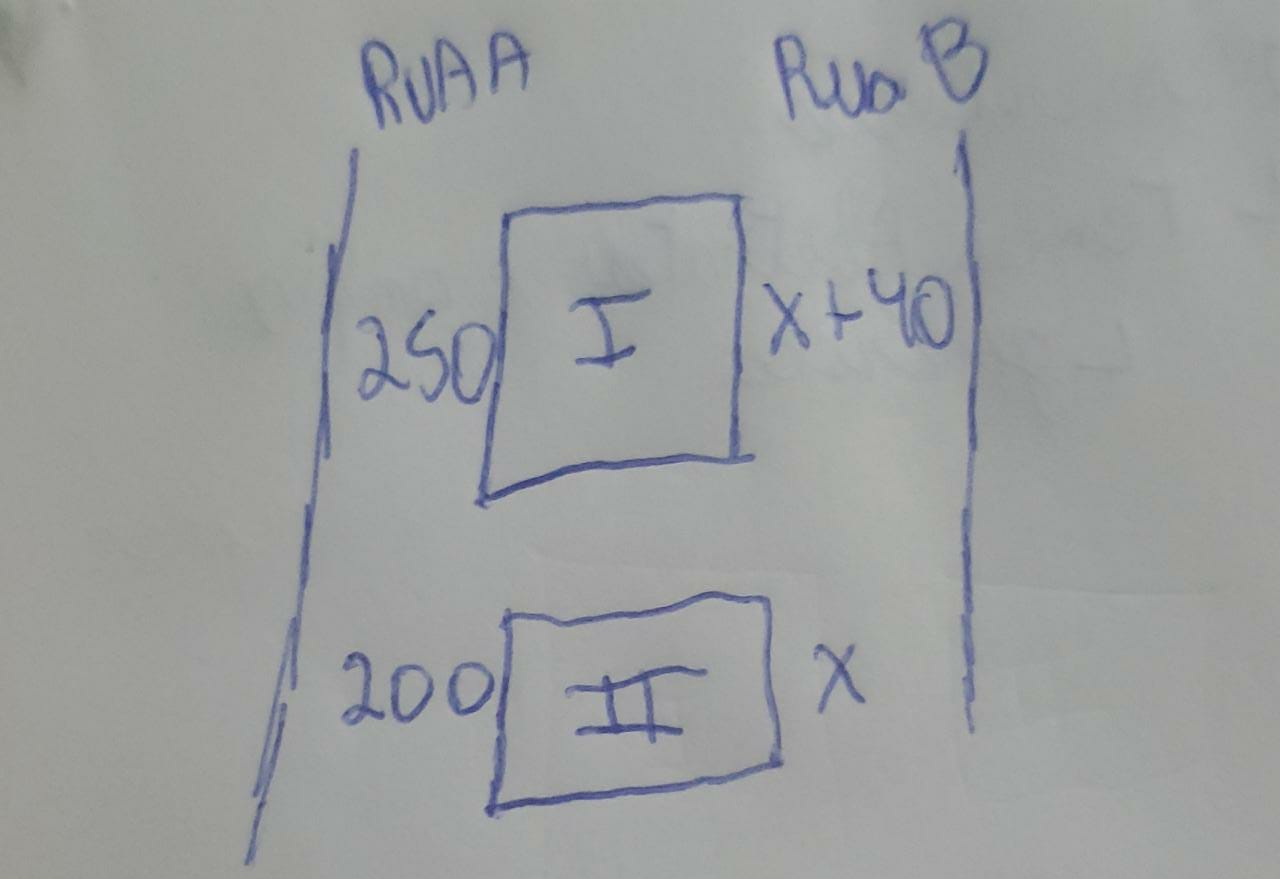 RUA A Rua B
250 I x+40
200 II x